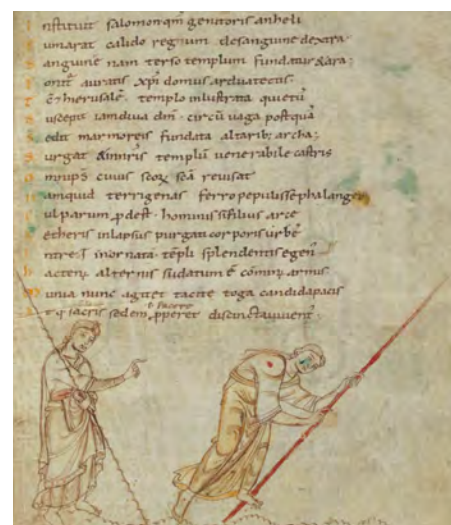 nstituit salomon qm genitoris anheli
umarat calido regnum desanguine dextra
anguine nam terso templum fundatur & ara
onit auratis xpi domus ardua tectis
c hierusale templo inlustrata quietu
uscepit iamdiua dm circu uaga postqua
edit marmoreis fundata altarib; archa
urgat & innris templu uenerabile castris
mnips cuius scor sca reuisat
amquid terrigenas ferro pepulisse phalanges
ulparum pdest hominis sifilius arce
etheris inlapsus purgati corporis urbe
ntret inornata templi splendentis egen
acten alternis sudatum e comin armis
unia nunc agitet tacite toga candida pacis
t q sacris sedem pperet discincta iuuent